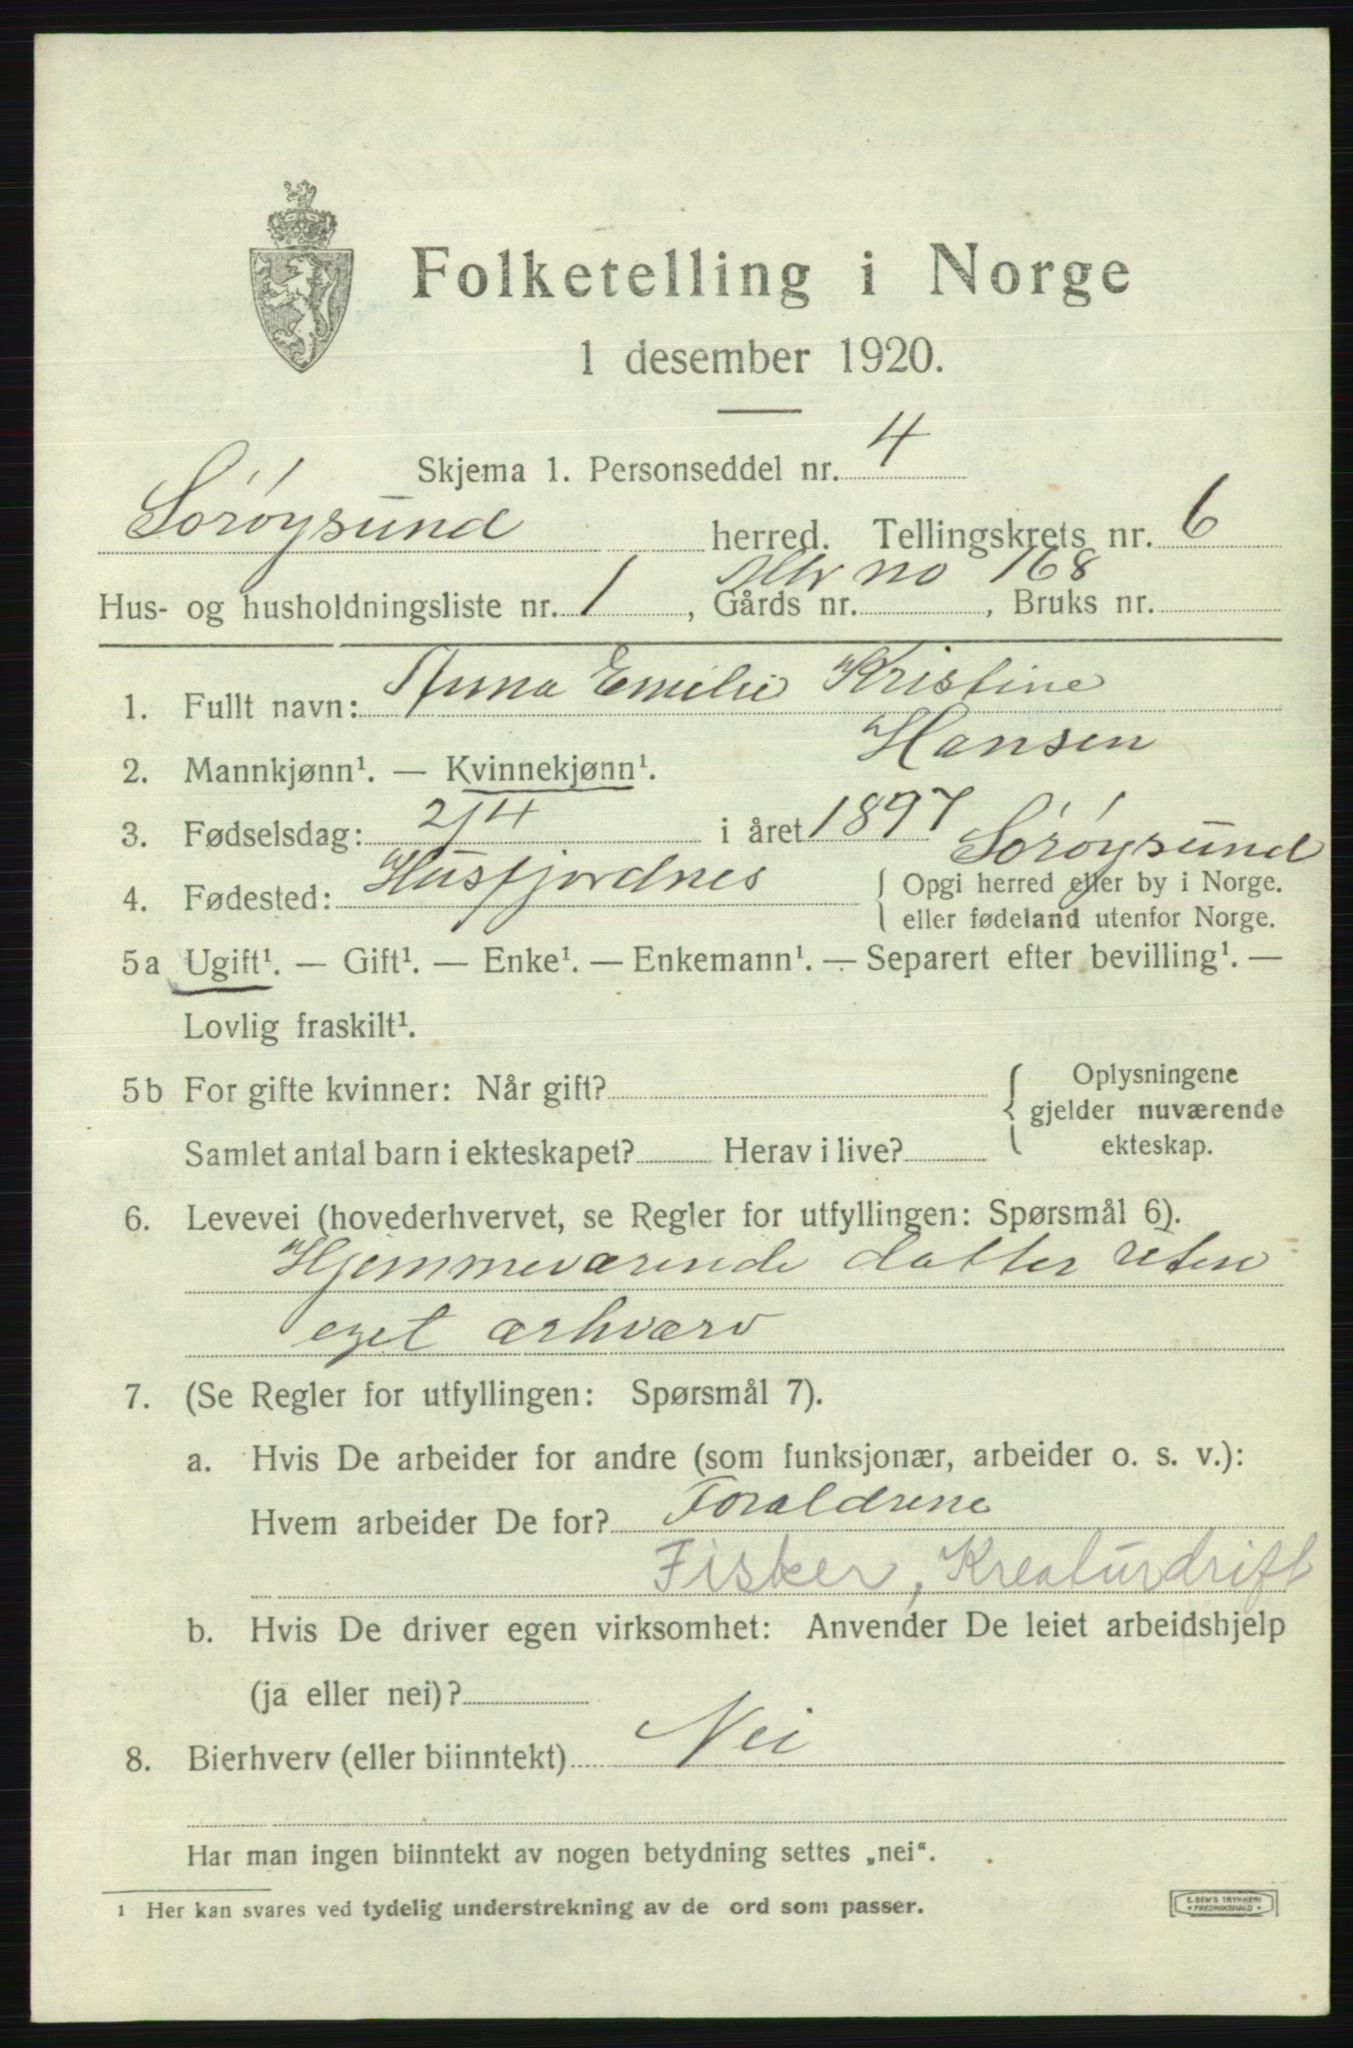 Folketelling i Norge
1 desember 1920.
Skjema 1. Personseddel nr. 4
Sørøysund herred. Tellingskrets nr. 6
Mtr no 168
Hus- og husholdningsliste nr. 1, Gårds nr. , Bruks nr.
1. Fullt navn: Anna Emilie Kristine
Hansen
2. Mannkjønn¹. — Kvinnekjønn¹.
3. Fødselsdag: 2/4 i året 1897
Sørøysund
4. Fødested: Husfjordnes { Opgi herred eller by i Norge.
eller fødeland utenfor Norge.
5a Ugift¹. — Gift¹. — Enke¹. — Enkemann¹. — Separert efter bevilling¹. —
Lovlig fraskilt¹.
5b For gifte kvinner: Når gift?
Samlet antal barn i ekteskapet? Herav i live?
Oplysningene
gjelder nuværende
ekteskap.
6. Levevei (hovederhvervet, se Regler for utfyllingen: Spørsmål 6).
Hjemmeværende datter uten
eget ærhværv
7. (Se Regler for utfyllingen: Spørsmål 7).
a. Hvis De arbeider for andre (som funksjonær, arbeider o. s. v.):
Hvem arbeider De for? Foraldrene
Fisker, Kreaturdrift
b. Hvis De driver egen virksomhet: Anvender De leiet arbeidshjelp
(ja eller nei)?
8. Bierhverv (eller biinntekt) Nei
Har man ingen biinntekt av nogen betydning settes „nei“.
¹ Her kan svares ved tydelig understrekning av de ord som passer.
E. SEM'S TRYKKERI
FREDRIKSHALD